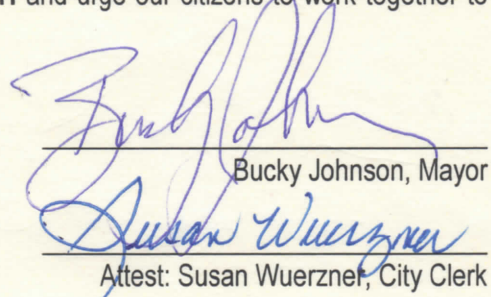 and urge our citizens to work together to
Bucky Johnson
Bucky Johnson, Mayor
Susan Wuerzner
Attest: Susan Wuerzner, City Clerk